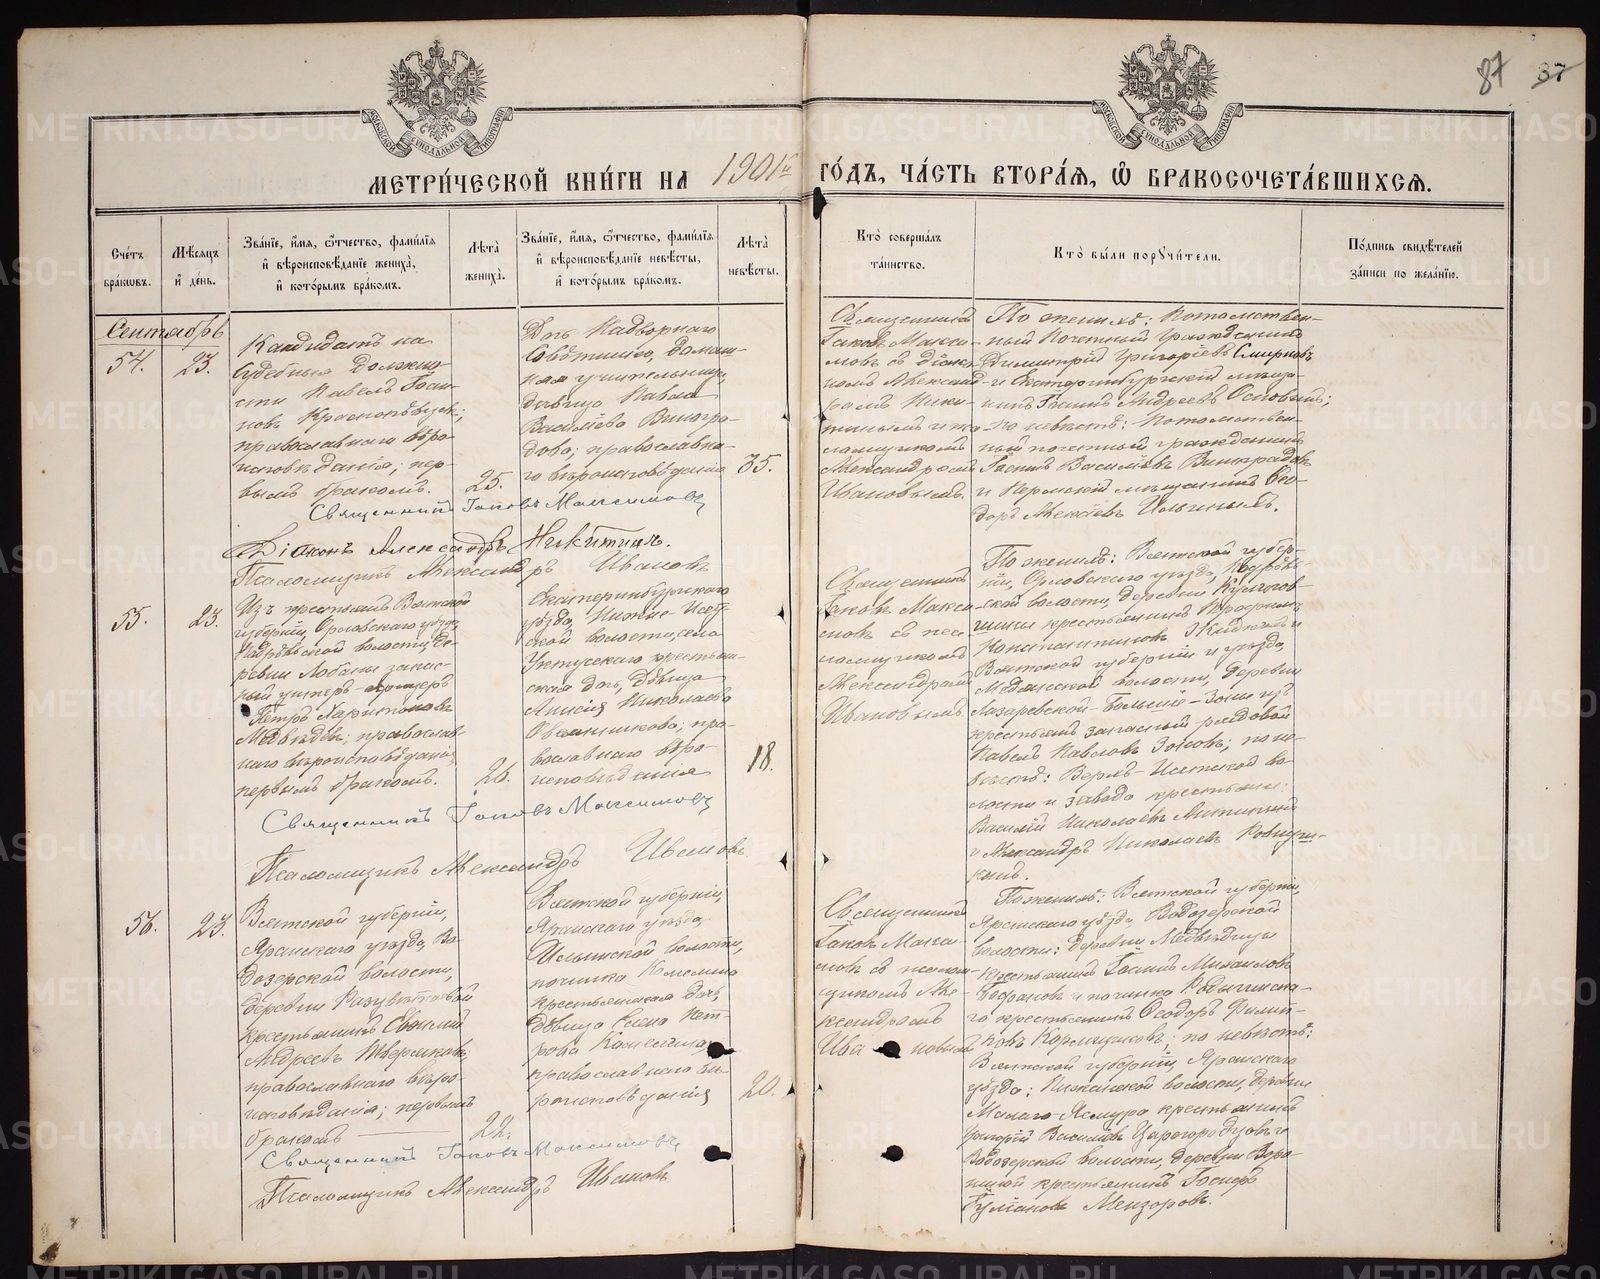 87 37
МЕТРИ́ЧЕСКОЙ КНИ́ГИ НА 1901й ГО́ДЪ, ЧА́СТЬ ВТОРА́Я, Ѽ БРАКОСОЧЕТА́ВШИХСЯ.
Сче́тъ бра́кѡвъ.
Мѣ́сяцъ и҆ де́нь.
Зва́нїе, и҆́мя, ѻ҆́тчество, фами́лїя и҆ вѣроисповѣ́данїе жениха̀, и҆ кото́рымъ бра́комъ.
Лѣ́та жениха̀.
Зва́нїе, и҆́мя, ѻ҆́тчество, фами́лїя и҆ вѣроисповѣ́данїе невѣ́сты, и҆ кото́рымъ бра́комъ.
Лѣ́та невѣ́сты.
Кто̀ соверша́лъ та́инство.
Кто̀ бы́ли порꙋчи́тели.
По́дпись свидѣ́телей за́писи по жела́нїю.
Сентябрь
54.
23.
Кандидатъ на
судебныя должно-
сти Павелъ Іоан-
новъ
православнаго вѣро-
исповѣданія; пер-
вымъ бракомъ.
25.
Дочь Надворнаго
Совѣтника, домаш-
няя учительница,
дѣвица Павла
Васильева Виногра-
дова; православна-
го вѣроисповѣданія
35.
Священникъ
Іаковъ Макси-
мовъ съ діако-
номъ Александ-
ромъ Ники-
тинымъ и пса-
ломщикомъ
Александромъ
Ивановымъ.
По женихѣ: Потомствен-
ный Почетный Гражданинъ
Димитрій Григорьевъ Смирновъ
и Екатеринбургскій мѣща-
нинъ Іоаннъ Андреевъ
по невѣстѣ: Потомствен-
ный почетный гражданинъ
Василіевъ Виноградовъ
и Пермскій мѣщанинъ Ѳео-
доръ Алексѣевъ Ильиныхъ.
Священникъ Іаковъ Максимовъ
Діаконъ Александръ Никитинъ.
Псаломщикъ Александръ Ивановъ
55.
23.
Изъ крестьянъ Вятской
губерніи, Орловскаго уѣзда,
волости, де-
ревни Лобани запас-
ный унтеръ-офицеръ
Петръ Харитоновъ
Медвѣдевъ; православ-
наго вѣроисповѣданія,
первымъ бракомъ.
26.
Екатеринбургскаго
уѣзда, Нижне-Исет-
ской волости, села
Уктусскаго крестьян-
ская дочь, дѣвица
Анисія Николаева
Овчинникова; пра-
вославнаго вѣро-
исповѣданія
18.
Священникъ
Іаковъ Макси-
мовъ съ пса-
ломщикомъ
Александромъ
Ивановымъ
По женихѣ: Вятской губер-
ніи, Орловскаго уѣзда,
волости, деревни
крестьянинъ
Константиновъ
Вятской губерніи и уѣзда,
волости, деревни
Лазаревской-Большіе-Зоны изъ
крестьянъ запасный рядовой
Павелъ Павловъ Зоновъ; по не-
вѣстѣ: Верхъ-Исетской во-
лости и завода крестьяне:
Василій Николаевъ
и Александръ Николаевъ
Священникъ Іаковъ Максимовъ
Псаломщикъ Александръ Ивановъ
56.
23.
Вятской губерніи,
Яранскаго уѣзда, Во-
дозерской волости,
деревни
крестьянинъ Евгеній
Андреевъ
православнаго вѣро-
исповѣданія; первымъ
бракомъ
22.
Вятской губерніи,
Яранскаго уѣзда,
Ильинской волости,
починка
крестьянская дочь,
дѣвица Елена Пет-
рова
православнаго вѣ-
роисповѣданія
20.
Священникъ
Іаковъ Макси-
мовъ съ псалом-
щикомъ Але-
ксандромъ
Ивановымъ
По женихѣ: Вятской губерніи,
Яранскаго уѣзда, Водозерской
волости: деревни Медвѣдицы
крестьянинъ Іоаннъ Михаиловъ
и починка
го крестьянинъ Ѳеодоръ Филип-
повъ по невѣстѣ:
Вятской губерніи, Яранскаго
уѣзда: волости, деревни
Малаго крестьянинъ
Григорій Василіевъ Царегородцевъ и
Водозерской волости, деревни Воро-
ниной крестьянинъ
Священникъ Іаковъ Максимовъ
Псаломщикъ Александръ Ивановъ.